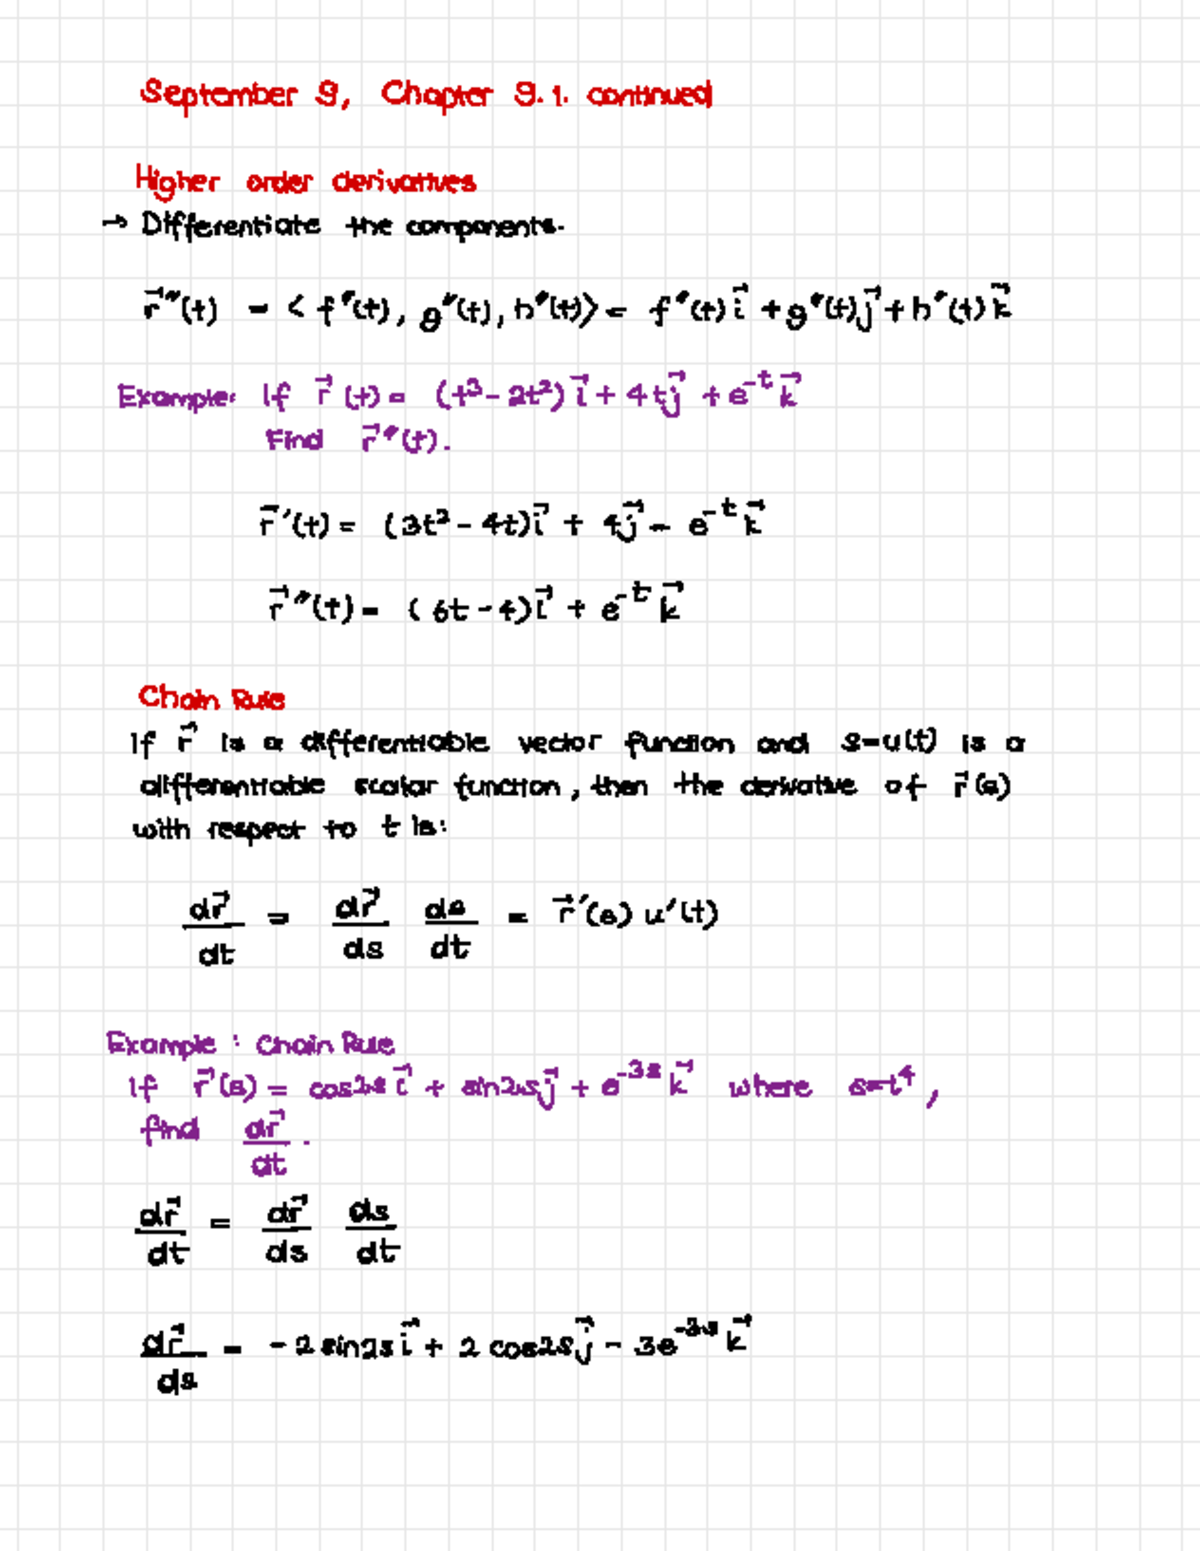 September 9, Chapter 9.1. continued
Higher order derivatives
→ Differentiate the components.
r⃗''(t) = < f''(t), g''(t), h''(t)> = f''(t) i⃗ + g''(t) j⃗ + h''(t) k⃗
Example: If r⃗(t) = (t³ - 2t²) i⃗ + 4t j⃗ + e^-t k⃗
Find r⃗''(t).
r⃗'(t) = (3t² - 4t) i⃗ + 4 j⃗ - e^-t k⃗
r⃗''(t) = (6t - 4) i⃗ + e^-t k⃗
Chain Rule
If r⃗ is a differentiable vector function and s=u(t) is a
differentiable scalar function, then the derivative of r⃗(s)
with respect to t is:
dr⃗/dt = dr⃗/ds ds/dt = r⃗'(s) u'(t)
Example: Chain Rule
If r⃗(s) = cos2s i⃗ + sin2s j⃗ + e^-3s k⃗ where s=t⁴,
find dr⃗/dt.
dr⃗/dt = dr⃗/ds ds/dt
dr⃗/ds = -2 sin2s i⃗ + 2 cos2s j⃗ - 3e^-3s k⃗